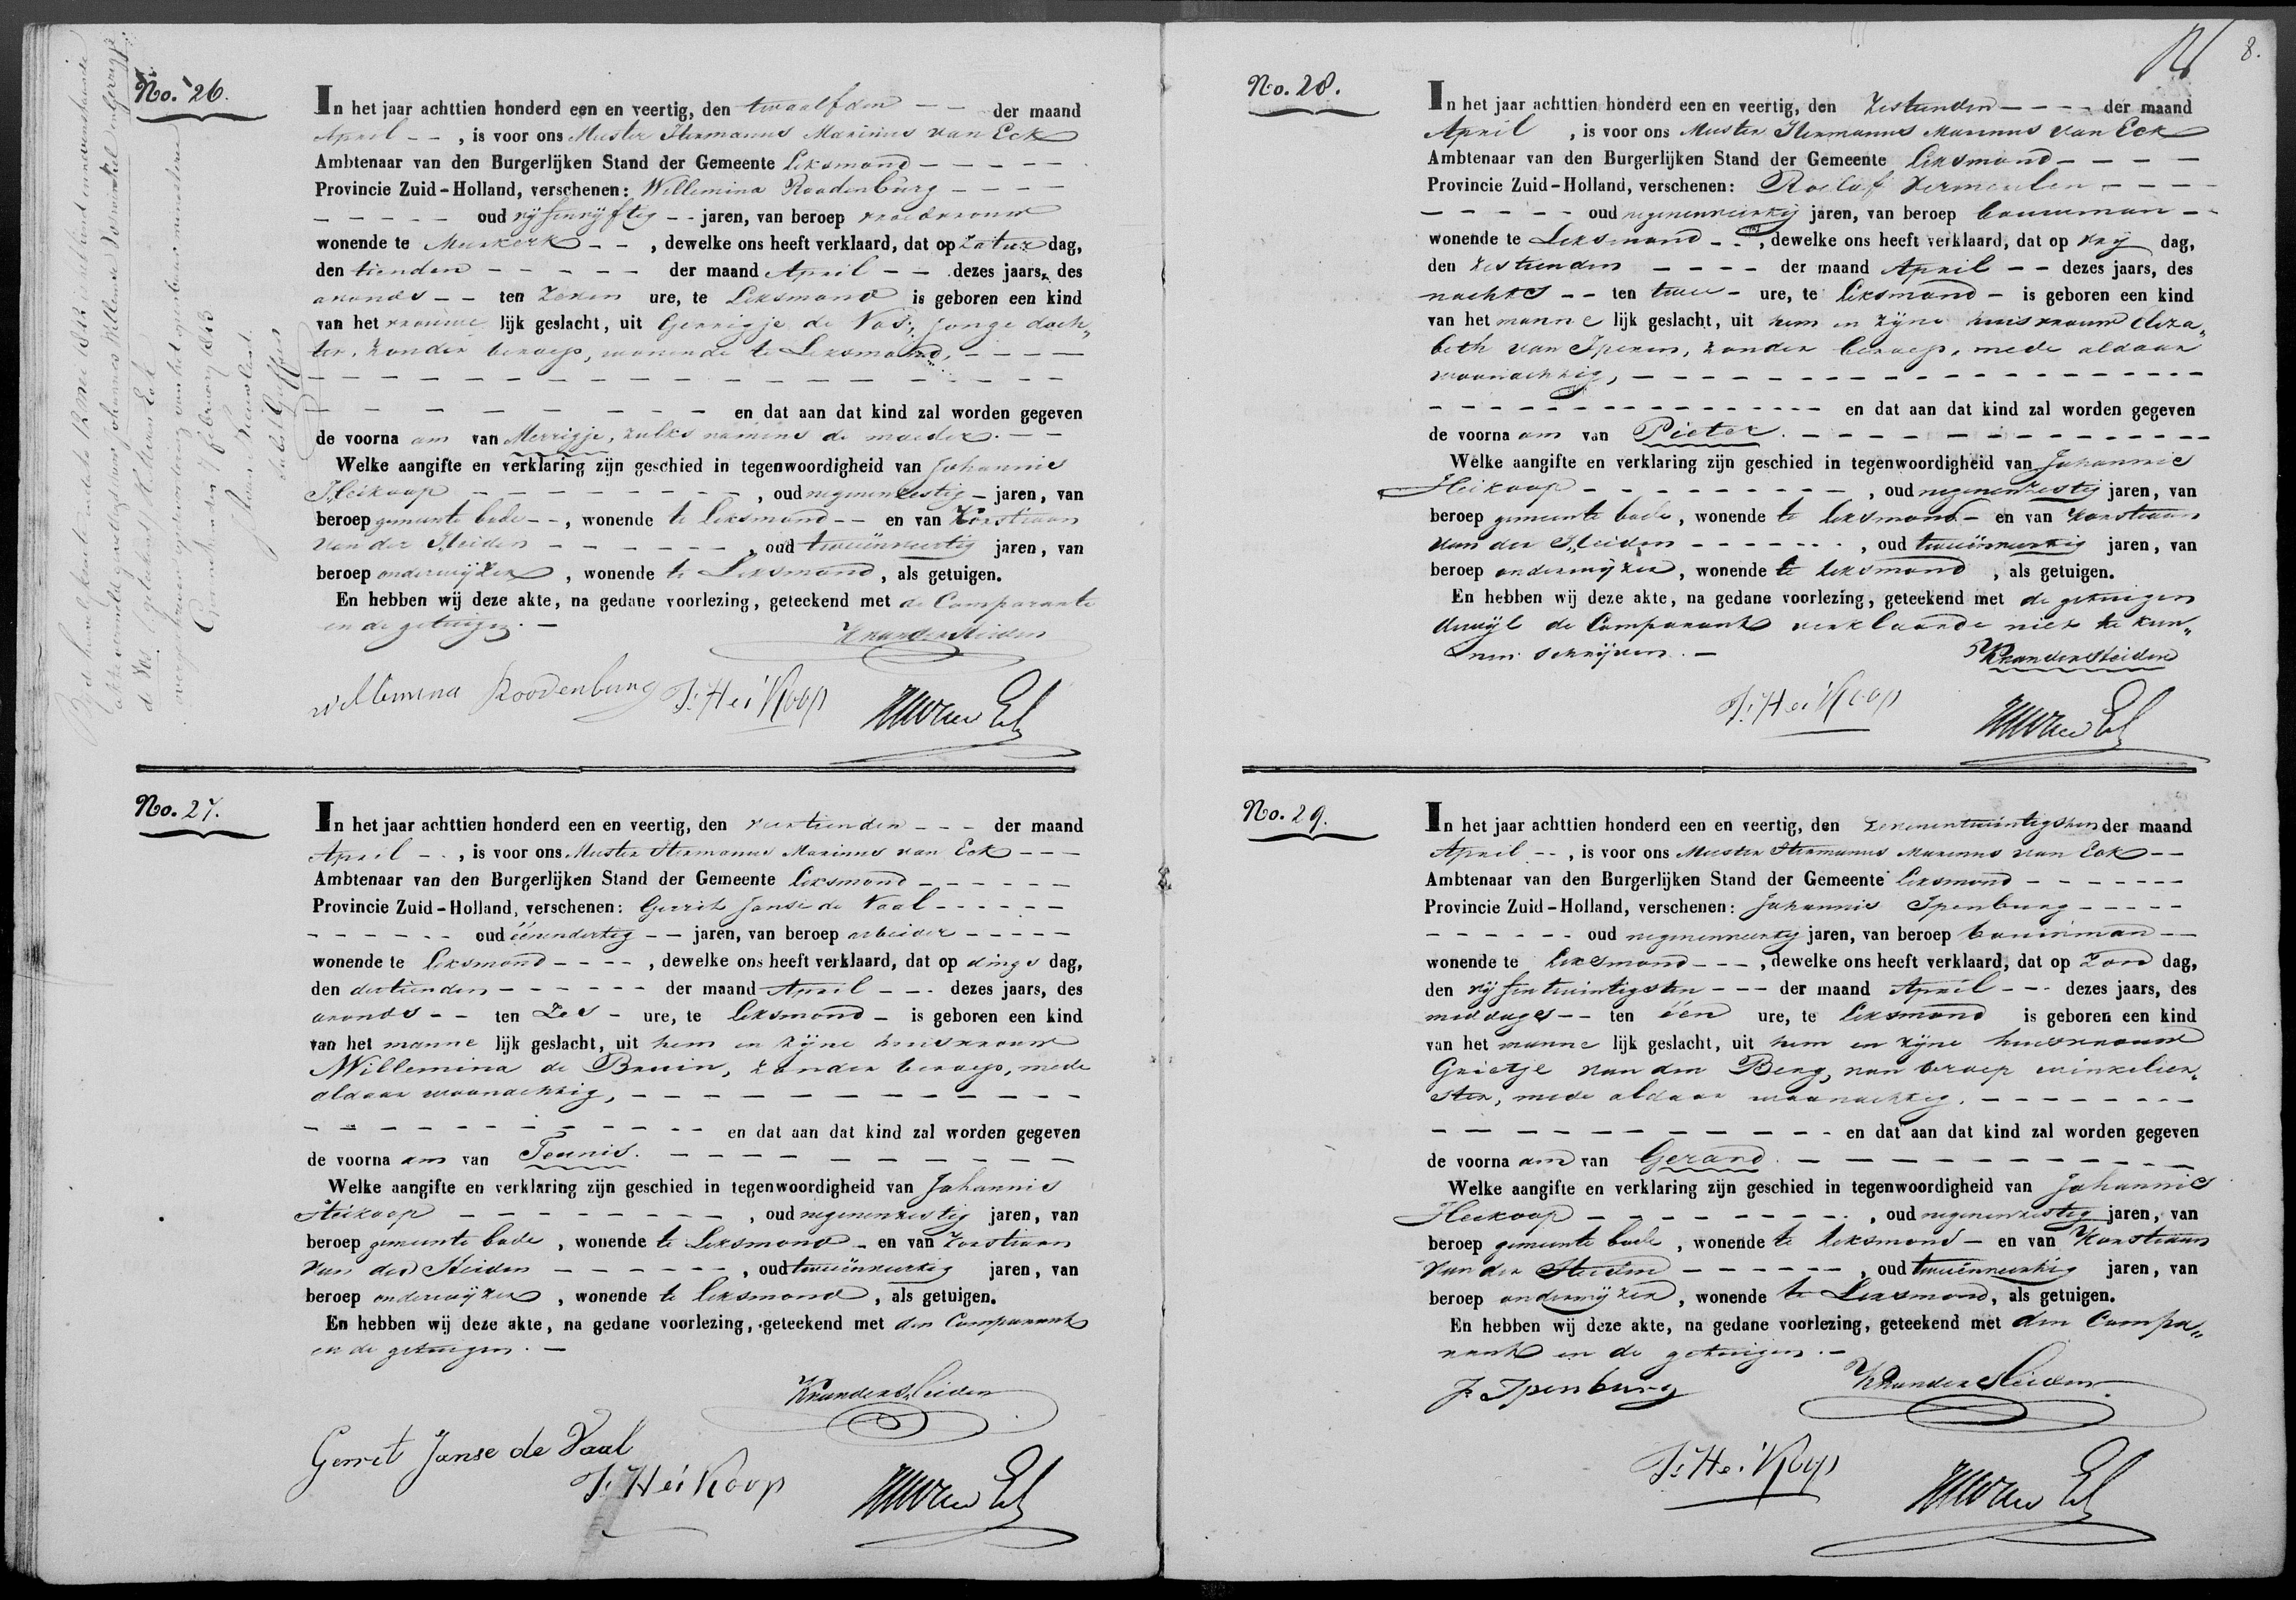 No. 26.
In het jaar achttien honderd een en veertig, den twaalfden - - der maand
April - - , is voor ons Meester Hermanus Marinus van Eck
Ambtenaar van den Burgerlijken Stand der Gemeente Leksmond - - - - -
Provincie Zuid-Holland, verschenen: Willemina Roodenburg - - - -
- - - - - oud vijfenvijftig - - jaren, van beroep vroedvrouw
wonende te Meerkerk - - , dewelke ons heeft verklaard, dat op Zaturdag,
den tienden - - - - - der maand April - - dezes jaars, des
avonds - - ten zeven ure, te Leksmond is geboren een kind
van het vrouwelijk geslacht, uit Gerrigje de Vos, jonge doch„
ter, zonder beroep, wonende te Leksmond, - - - -
- - - - - - - - en dat aan dat kind zal worden gegeven
de voornaam van Merrigje, zulks namens de moeder. - -
Welke aangifte en verklaring zijn geschied in tegenwoordigheid van Johannis
Heikoop - - - - - - - - , oud negenenzestig - jaren, van
beroep gemeente bode - - , wonende te Leksmond - - en van Korstiaan
van der Heiden - - - - - - , oud tweeënveertig jaren, van
beroep onderwijzer , wonende te Leksmond , als getuigen.
En hebben wij deze akte, na gedane voorlezing, geteekend met de Comparante
en de getuigen. -
K van der Heiden
willemina Roodenburg J: Heikoop HM van Eck
Bij huwelijksacte
akte vermelde Johannes Willem
de Vos (geteekend) H. M. van Eck
Gorinchem den 7 february
No. 27.
In het jaar achttien honderd een en veertig, den veertienden - - - der maand
April - - , is voor ons Meester Hermanus Marinus van Eck - - -
Ambtenaar van den Burgerlijken Stand der Gemeente Leksmond - - - - - -
Provincie Zuid-Holland, verschenen: Gerrit Janse de Vaal - - - - -
- - - - - - oud éénendertig - - jaren, van beroep arbeider - - - - -
wonende te Leksmond - - - - , dewelke ons heeft verklaard, dat op dingsdag,
den dertienden - - - - - - der maand April - - - dezes jaars, des
avonds - - ten Zes - ure, te Leksmond - is geboren een kind
van het mannelijk geslacht, uit hem en zijne huisvrouw
Willemina de Bruin, zonder beroep, mede
aldaar woonachtig, - - - - - - - - - - -
- - - - - - - - - en dat aan dat kind zal worden gegeven
de voornaam van Teunis. - - - - - - - - - -
Welke aangifte en verklaring zijn geschied in tegenwoordigheid van Johannis
Heikoop - - - - - - - - , oud negenenzestig jaren, van
beroep gemeente bode , wonende te Leksmond - en van Korstiaan
van der Heiden - - - - - - , oud tweeënveertig jaren, van
beroep onderwijzer , wonende te Leksmond , als getuigen.
En hebben wij deze akte, na gedane voorlezing, geteekend met den Comparant
en de getuigen. -
K van der Heiden
Gerrit Janse de Vaal
J: Heikoop HM van Eck
8.
No. 28.
In het jaar achttien honderd een en veertig, den Zestienden - - - - der maand
April , is voor ons Meester Hermanus Marinus van Eck
Ambtenaar van den Burgerlijken Stand der Gemeente Leksmond - - - -
Provincie Zuid-Holland, verschenen: Roelof Vermeulen - - - -
- - - - - oud negenenveertig jaren, van beroep bouwman - -
wonende te Leksmond - - , dewelke ons heeft verklaard, dat op vrijdag,
den zestienden - - - - der maand April - - dezes jaars, des
nachts - - ten twee - ure, te Leksmond - is geboren een kind
van het mannelijk geslacht, uit hem en zijne huisvrouw Eliza„
beth van Iperen, zonder beroep, mede aldaar
woonachtig, - - - - - - - - - - - - -
- - - - - - - - - - - en dat aan dat kind zal worden gegeven
de voornaam van Pieter. - - - - - - - - - -
Welke aangifte en verklaring zijn geschied in tegenwoordigheid van Johannis
Heikoop - - - - - - - - , oud negenenzestig jaren, van
beroep gemeente bode , wonende te Leksmond - en van Korstiaan
van der Heiden - - - - - - , oud tweeënveertig jaren, van
beroep onderwijzer , wonende te Leksmond , als getuigen.
En hebben wij deze akte, na gedane voorlezing, geteekend met de getuigen
dewijl de Comparant verklaarde niet te kun„
nen schrijven. -
K van der Heiden
J: Heikoop HM van Eck
No. 29.
In het jaar achttien honderd een en veertig, den zevenentwintigsten der maand
April - - , is voor ons Meester Hermanus Marinus van Eck - -
Ambtenaar van den Burgerlijken Stand der Gemeente Leksmond - - - - - -
Provincie Zuid-Holland, verschenen: Johannis Ipenburg - - - - -
- - - - - - oud negenenveertig jaren, van beroep bouwman - -
wonende te Leksmond - - - , dewelke ons heeft verklaard, dat op Zondag,
den vijfentwintigsten - - - der maand April - - - dezes jaars, des
middags - - ten één ure, te Leksmond is geboren een kind
van het mannelijk geslacht, uit hem en zijne huisvrouw
Grietje van den Berg, van beroep winkelier„
ster, mede aldaar woonachtig. - - - - - - - -
- - - - - - - - - - - en dat aan dat kind zal worden gegeven
de voornaam van Gerard. - - - - - - - - - -
Welke aangifte en verklaring zijn geschied in tegenwoordigheid van Johannis
Heikoop - - - - - - - - , oud negenenzestig jaren, van
beroep gemeente bode , wonende te Leksmond - en van Korstiaan
van der Heiden - - - - - - , oud tweeënveertig jaren, van
beroep onderwijzer , wonende te Leksmond , als getuigen.
En hebben wij deze akte, na gedane voorlezing, geteekend met den Compa„
rant en de getuigen. -
J: Ipenburg K van der Heiden
J: Heikoop HM van Eck